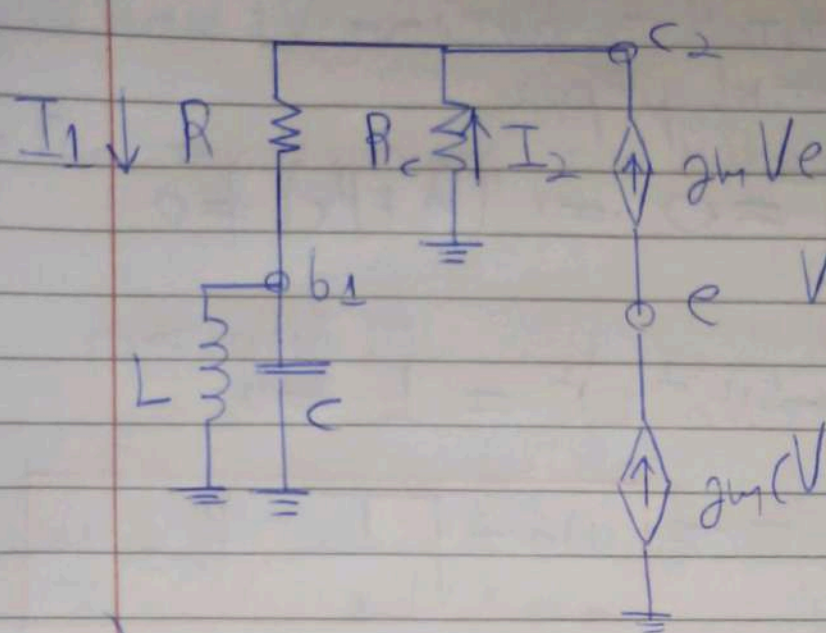 C2
I1 R Rc I2 gmVe
b1 e V
L C
gm(V